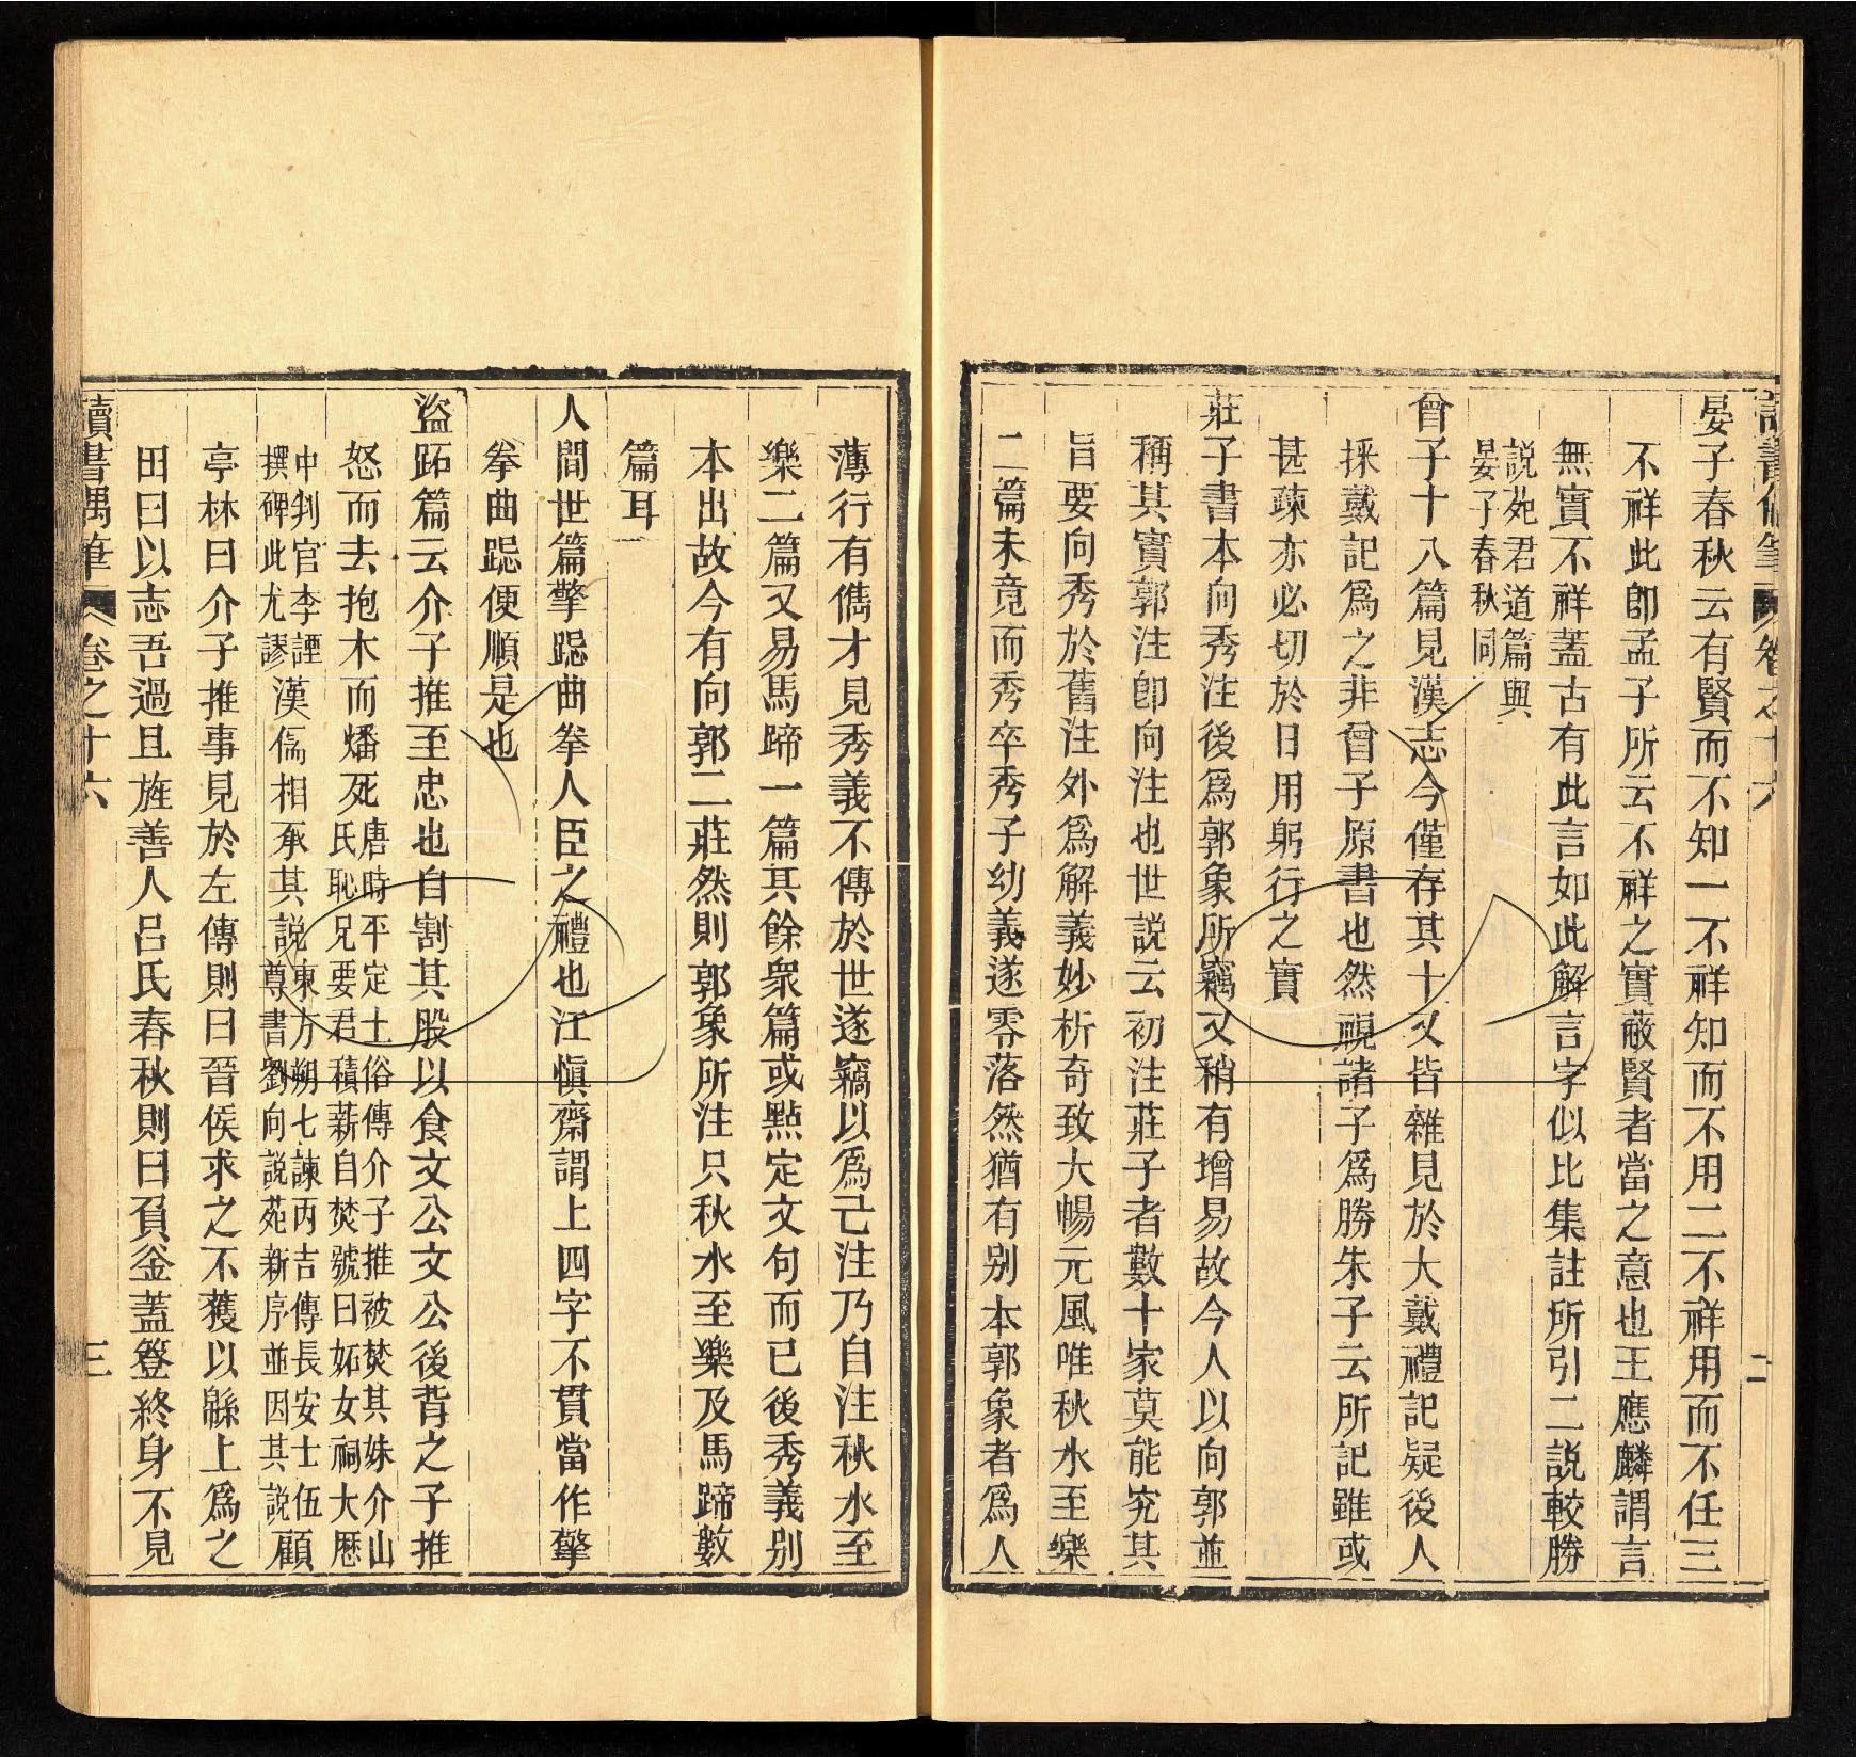 讀書偶筆 卷之十六 二
晏子春秋云有賢而不知一不祥知而不用二不祥用而不任三
不祥此卽孟子所云不祥之實蔽賢者當之意也王應麟謂言
無實不祥蓋古有此言如此解言字似比集註所引二說較勝
說苑君道篇與
晏子春秋同
曾子十八篇見漢志今僅存其十又皆雜見於大戴禮記疑後人
採戴記爲之非曾子原書也然視諸子爲勝朱子云所記雖或
甚疎亦必切於日用躬行之實
莊子書本向秀注後爲郭象所竊又稍有增易故今人以向郭並
稱其實郭注卽向注也世說云初注莊子者數十家莫能究其
旨要向秀於舊注外爲解義妙析奇致大暢元風唯秋水至樂
二篇未竟而秀卒秀子幼義遂零落然猶有別本郭象者爲人
薄行有儁才見秀義不傳於世遂竊以爲己注乃自注秋水至
樂二篇又易馬蹄一篇其餘衆篇或點定文句而已後秀義別
本出故今有向郭二莊然則郭象所注只秋水至樂及馬蹄數
篇耳
人間世篇擎跽曲拳人臣之禮也江愼齋謂上四字不貫當作擎
拳曲跽便順是也
盜跖篇云介子推至忠也自割其股以食文公文公後背之子推
怒而去抱木而燔死唐時平定土俗傳介子推被焚其妹介山
氏恥兄要君積薪自焚號曰妬女祠大歷
中判官李諲
撰碑此尤謬漢儒相承其說東方朔七諫丙吉傳長安士伍
尊書劉向說苑新序並因其說顧
亭林曰介子推事見於左傳則曰晉侯求之不獲以緜上爲之
田曰以志吾過且旌善人呂氏春秋則曰負釜蓋簦終身不見
讀書偶筆 卷之十六 三